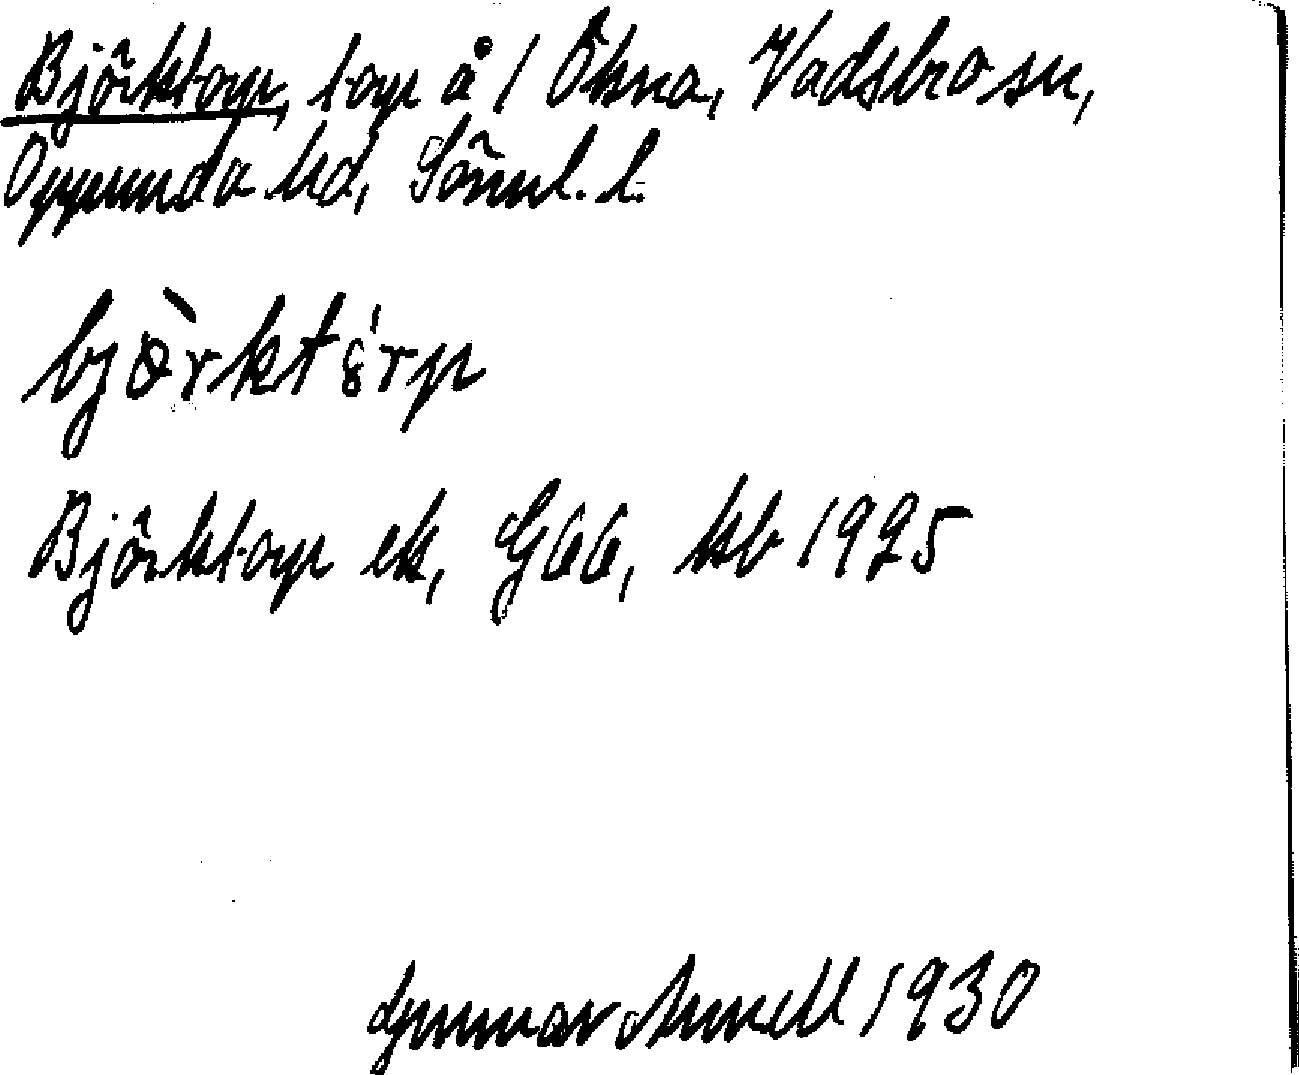 Björktorp, torp å / Ökna, Vadsbro sn,
Oppunda hd, Sörml. l.
bjòrktórp
Björktorp ek, G66, kb 1925
Gunnar Arnell 1930